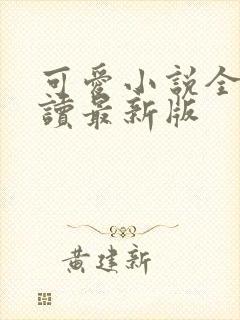 可愛小說全
讀最新版
黃建新